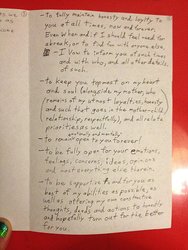 - To fully maintain honesty and loyalty to
you at all times, now and forever.
Even when and if I should feel need for
a break, or to find fun with anyone else.
- I Vow to inform you of such time
and with why, and all other details
of such.
- to keep you topmost on my heart
and soul (alongside my mother, who
remains at my utmost loyalties, honesty
and such that goes in the mother-child
relationship, respectfully), and all relate
priorities as well.
emotionally and mentally
- to remain open to you forever!
- to be fully open for your emotions,
feelings, concerns, ideas, opinions
and most everything else therein.
- To be supportive and for you as
best of my abilities as possible, as
well as offering my own constructive
thoughts, deeds and actions to honestly
and hopefully turn out for the better
for you.